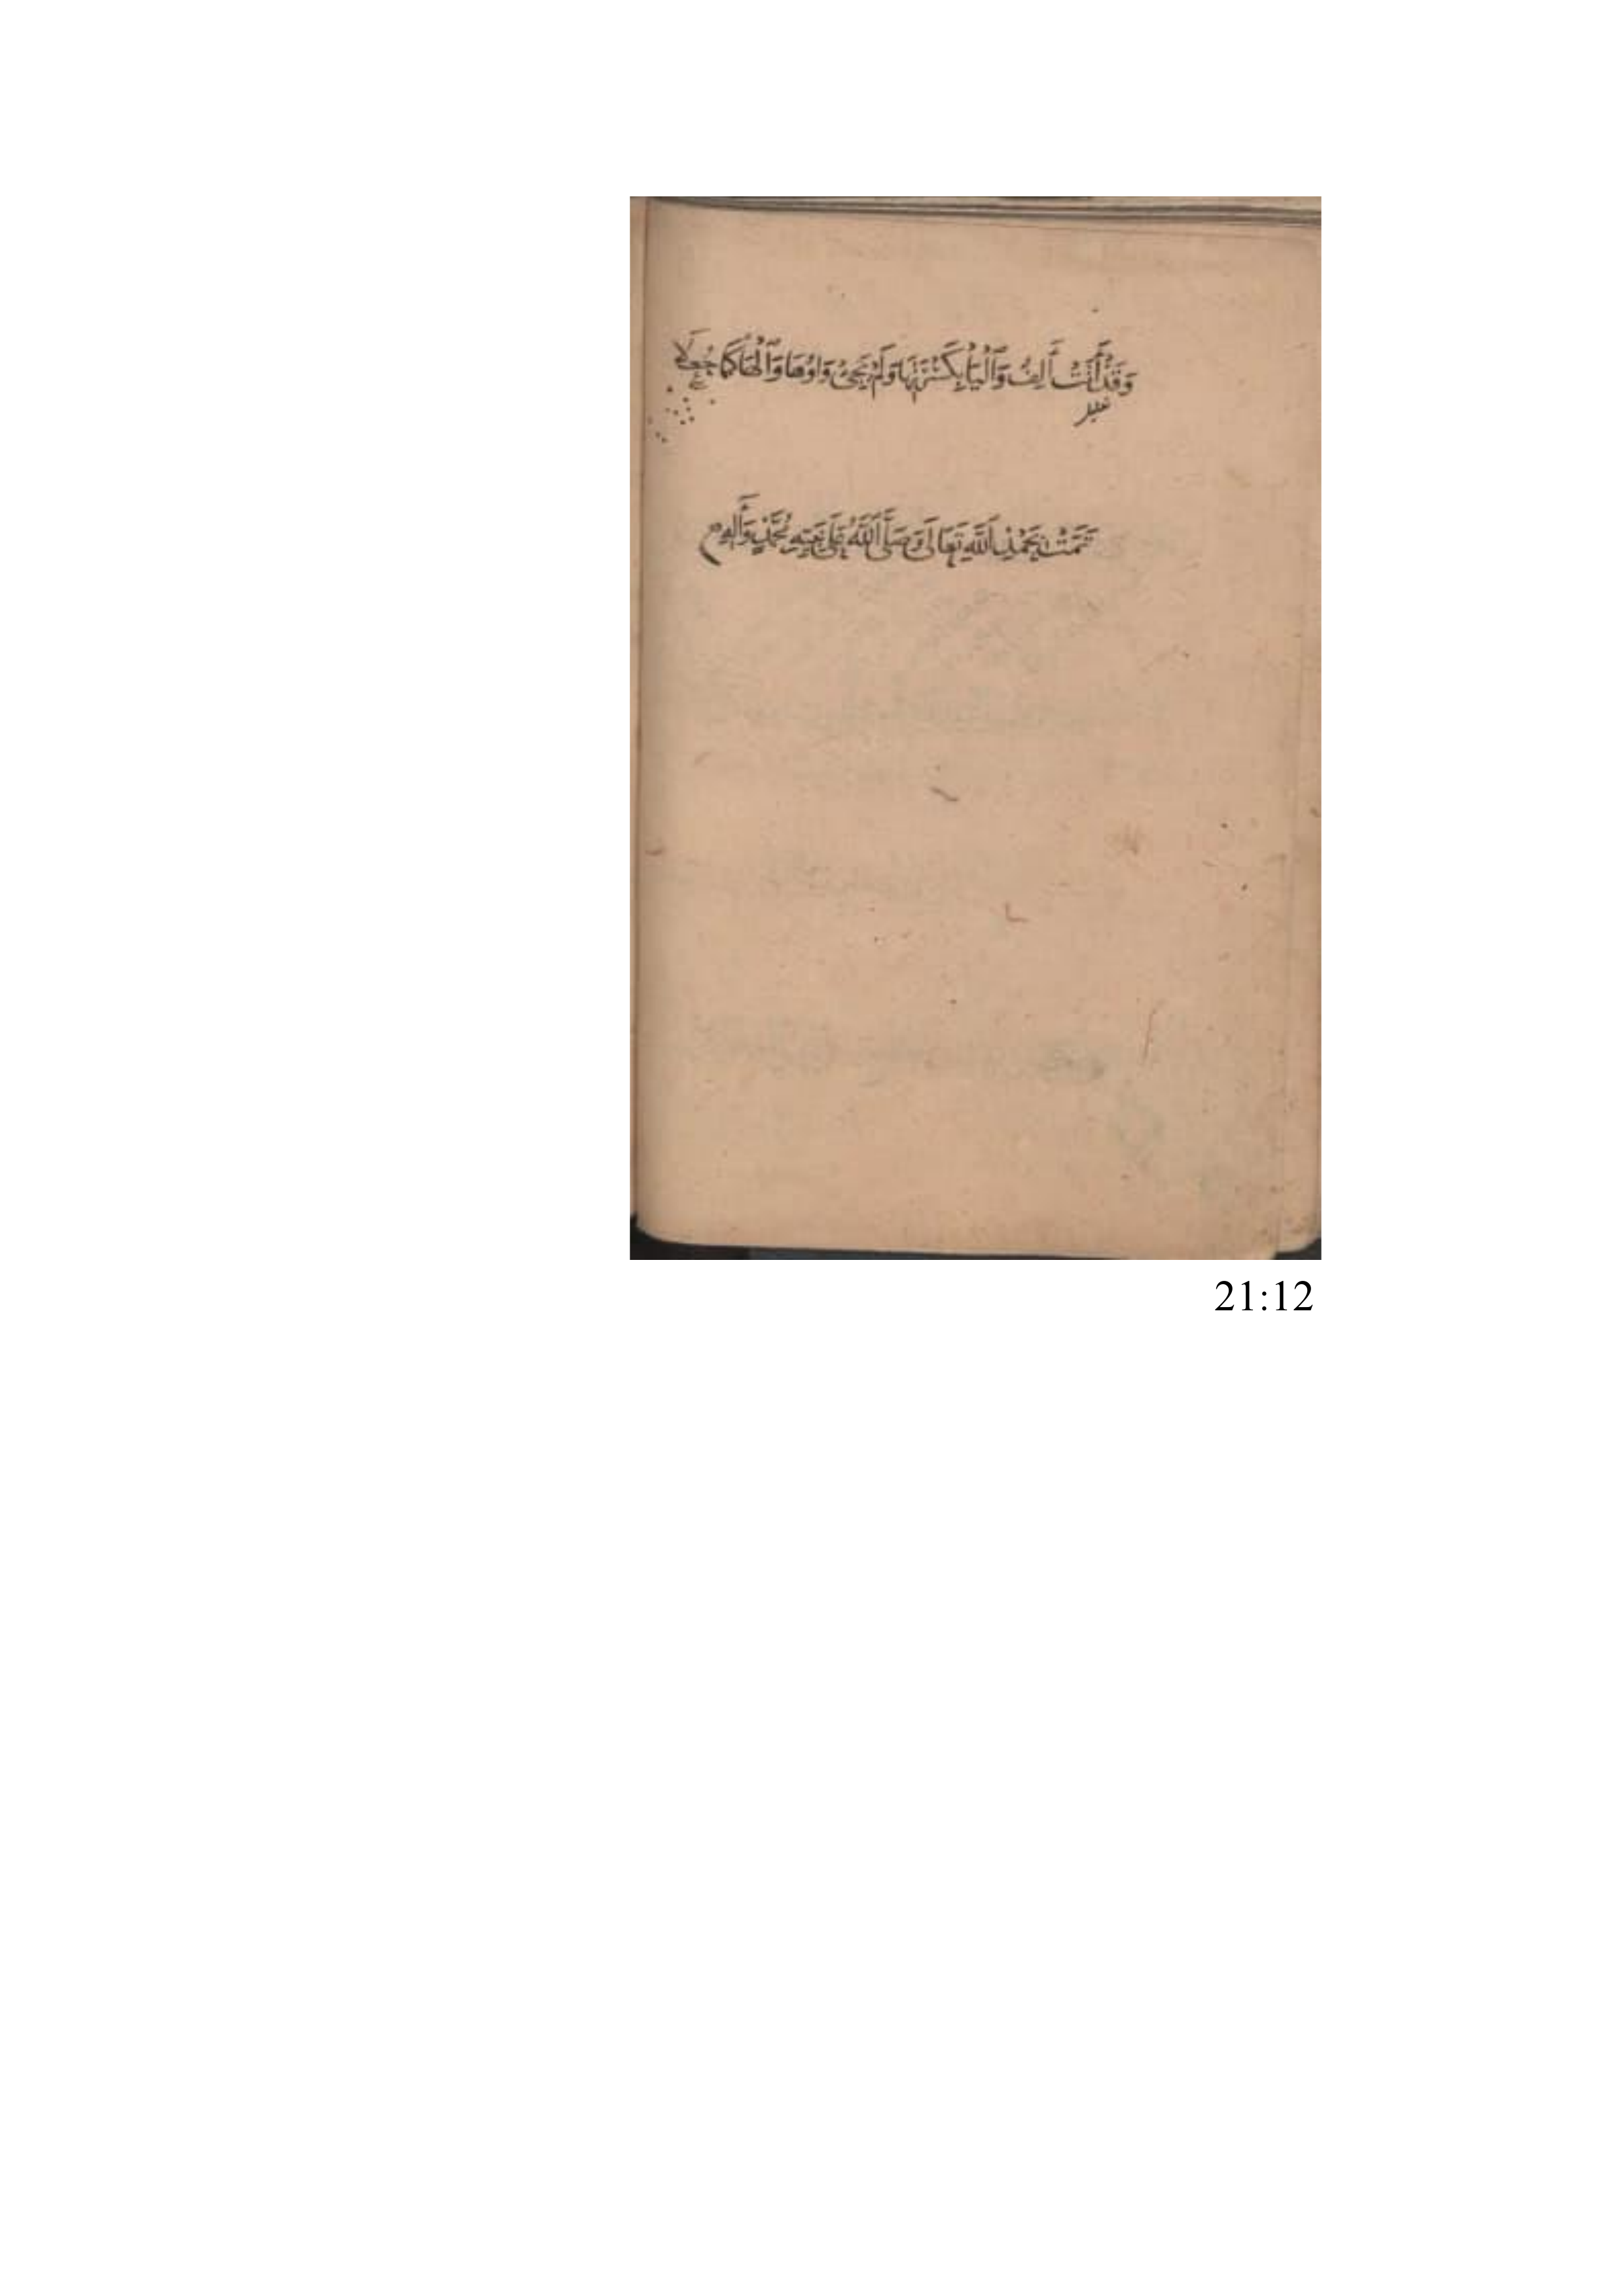 وَقَدْ أَتَتْ أَلِفٌ وَٱلْيَا بِكَسْرَتِهَا وَلَمْ يَجِئْ وَاوُهَا وَٱلْهَا كَمَا جُعِلَا
تَمَّتْ بِحَمْدِ ٱللَّهِ تَعَالَى وَصَلَّى ٱللَّهُ عَلَى نَبِيِّهِ مُحَمَّدٍ وَأَلِهِ
21:12